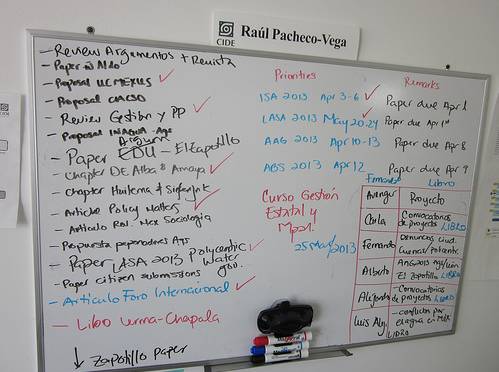 CIDE
Raúl Pacheco-Vega
- Review Argumentos + Revista
- Paper
- Proposal UC MEXUS
- Proposal CIACSO
- Review Gestión y PP
- Proposal
- Paper EDU - El Zapotillo
- Chapter DE Alba & Amaya
- Chapter Huitema &
- Articulo Policy Matters
- Articulo Rev. Mex Sociologia
- Propuesta pepenadores Ags
- Paper LASA 2013 Polycentric Water gov.
- Paper citizen submissions
- Articulo Foro Internacional
- Libro Lerma-Chapala
↓ Zapotillo paper
Priorities
ISA 2013 Apr 3-6
LASA 2013 May 20-24
AAG 2013 Apr 10-13
ABS 2013 Apr 12
Curso Gestión
Estatal y
Mpal.
25/Mar/2013
Remarks
Paper due Apr 1
Paper due Apr 1st
Paper due Apr 8
Paper due Apr 9
Fernando Libro
Proyecto
Convocatorias de proyectos LIBRO
Fernando
Denuncias Ciud.
Alberto
El Zapotillo LIBRO
Alejandra
- Convocatorias de proyectos LIBRO
Luis Alb.
- conflictos por el agua en Mex
LIBRO